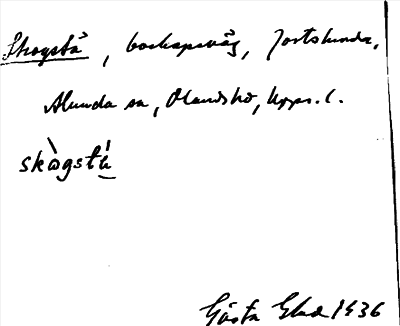 Skogstå, boskapsväg, Jortslunda,
Alunda sn, Olands hd, Upps. l.
skògstá
Gösta Eled 1936